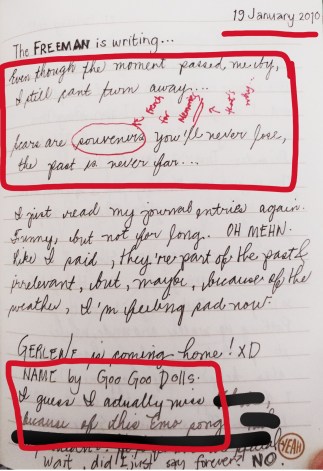 19 January 2010
The FREEMAN is writing...
Even though the moment passed me by,
I still cant turn away....
French for Memory
that's why
Scars are souvenirs you'll never lose,
the past is never far...
I just read my journal entries again.
Funny, but not for long. OH MEHN.
like I said, they're part of the past &
irrelevant, but, maybe, because of the
weather, I'm feeling sad now.
GERLENE is coming home! XD
NAME by GOO GOO DOLLS.
I guess I actually miss
because of this Emo song
wait, did I just say forever? NO
YEAH